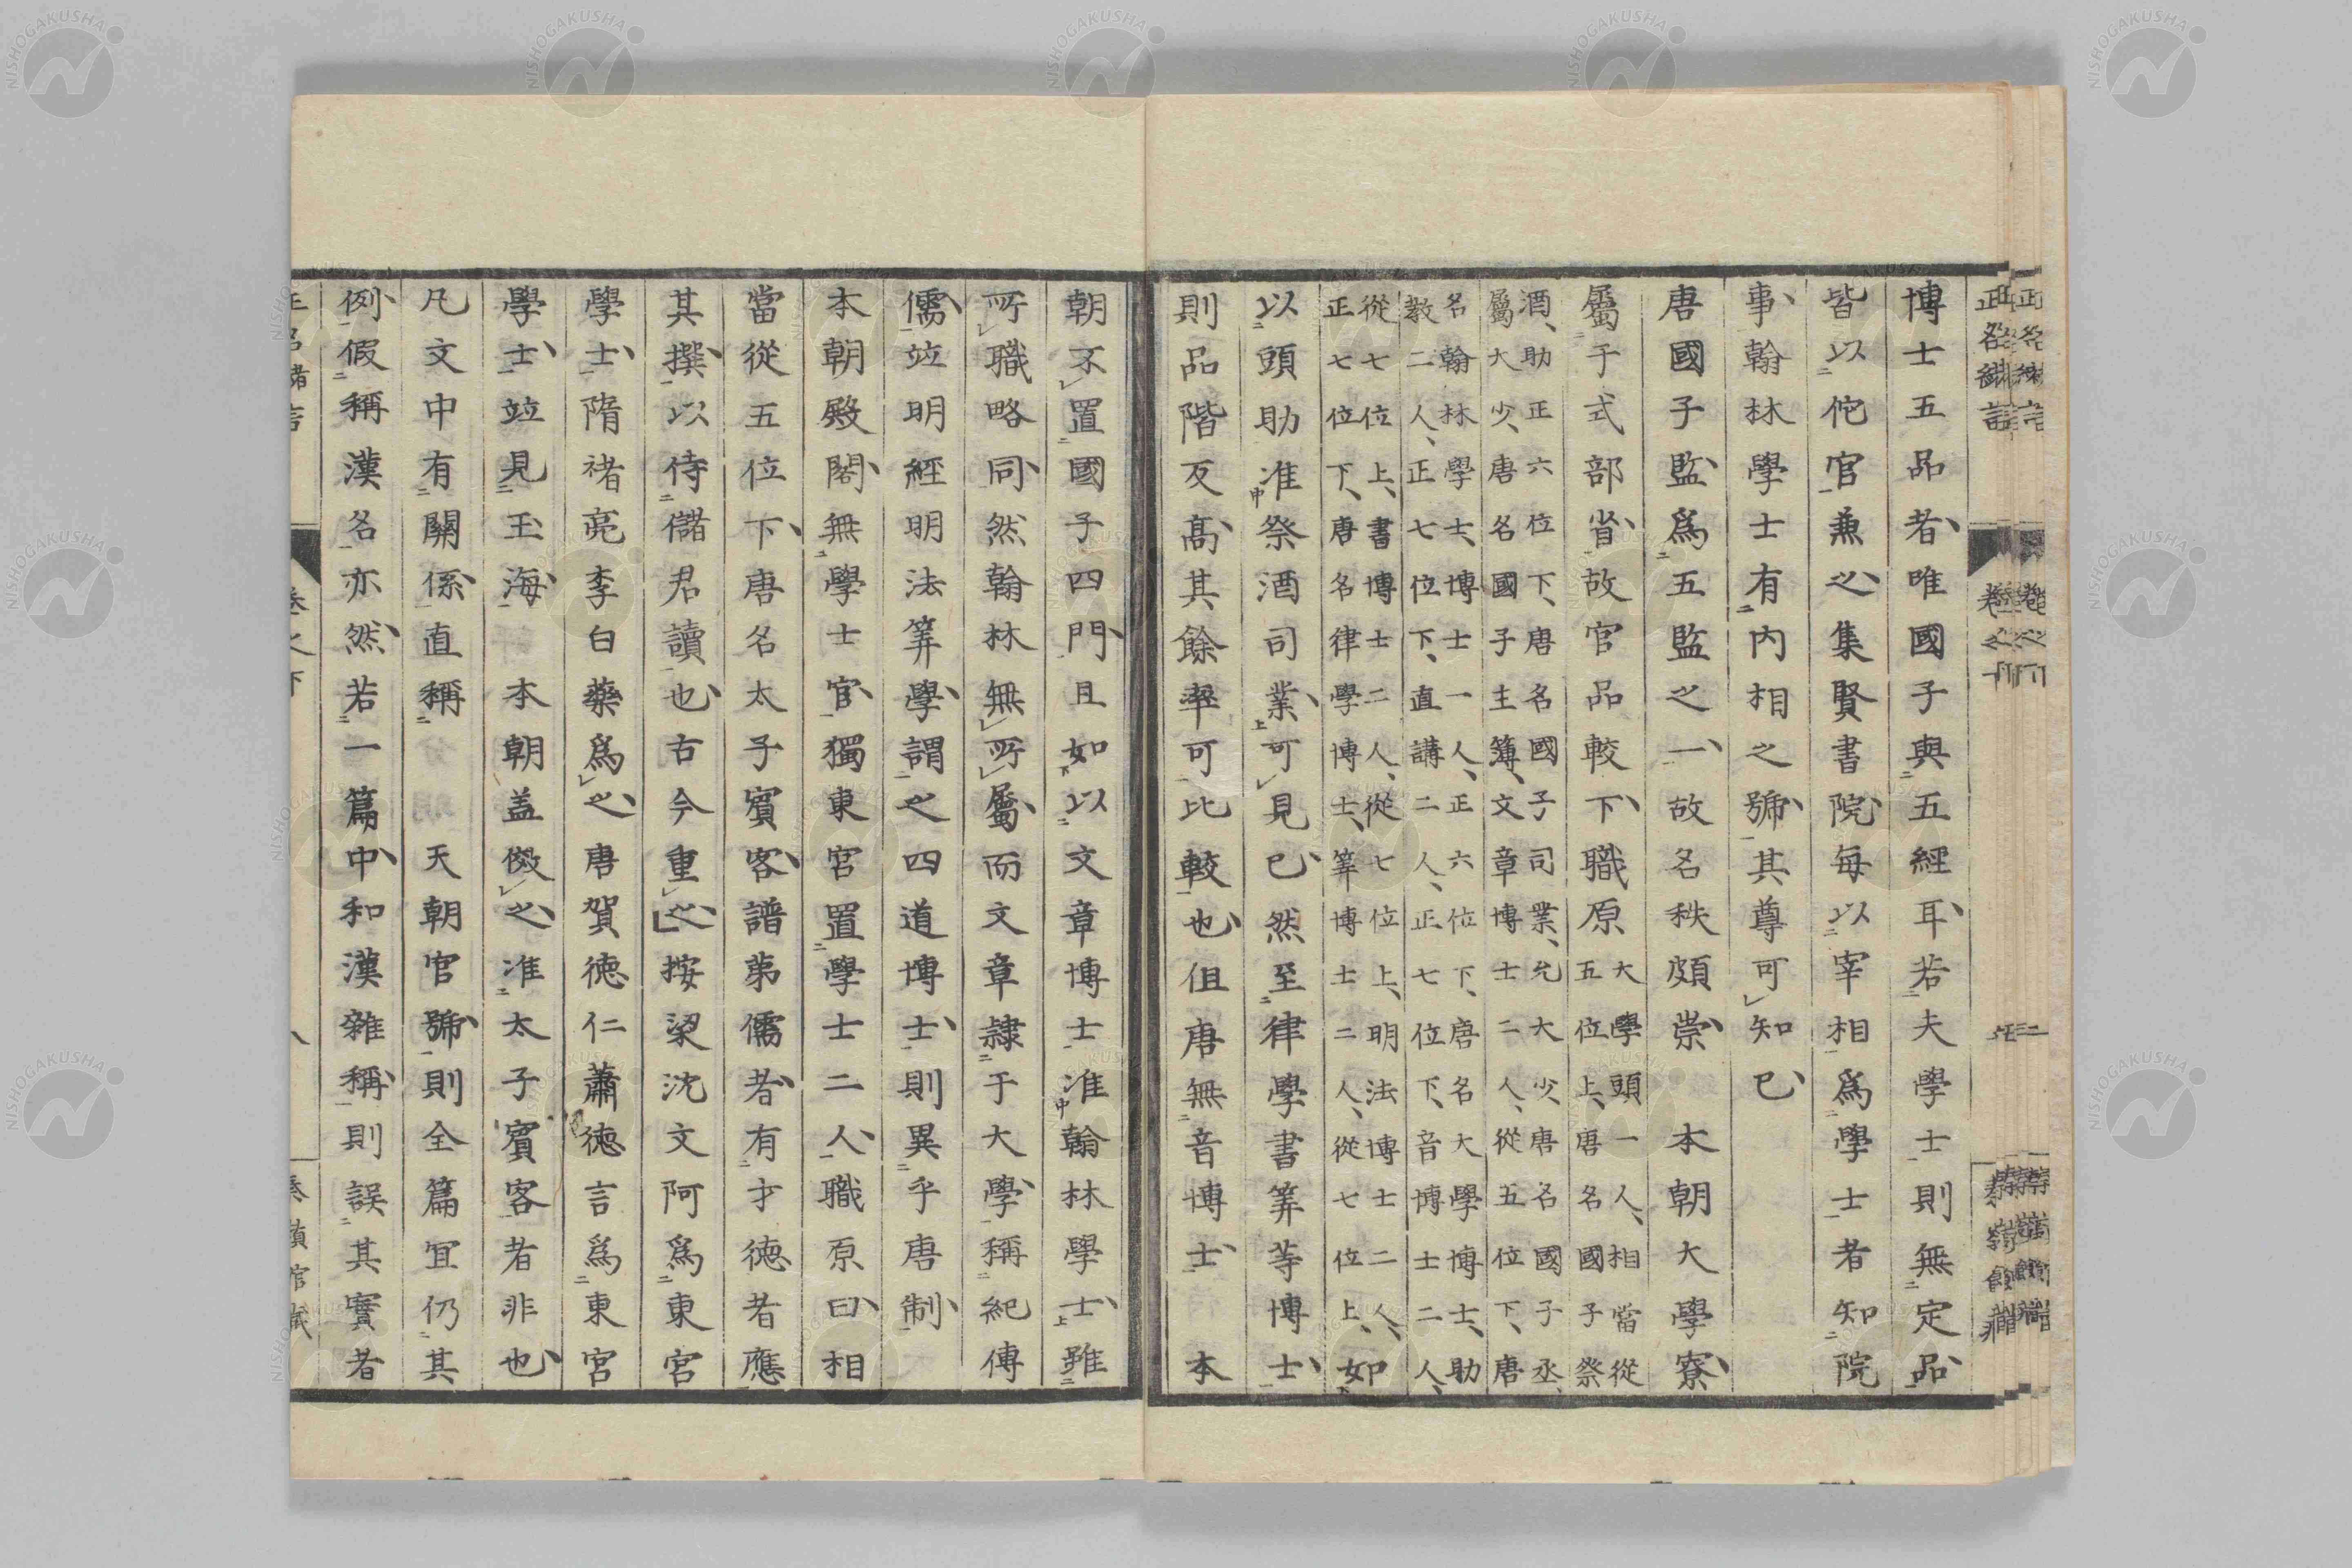 博士五品者、唯國子與五經耳、若夫學士則無定品、
皆以佗官兼之、集賢書院、每以宰相爲學士者知院
事、翰林學士有內相之號、其尊可知已、
唐國子監、爲五監之一、故名秩頗崇、 本朝大學寮、
屬于式部省、故官品較下、職原
大學頭一人、相當從
五位上、唐名國子祭
酒、助正六位下、唐名國子司業、允大少、唐名國子丞、
屬大少、唐名國子主簿、文章博士二人、從五位下、唐
名翰林學士、博士一人、正六位下、唐名大學博士、助
教二人、正七位下、直講二人、正七位下、音博士二人、
從七位上、書博士二人、從七位上、明法博士二人、
正七位下、唐名律學博士、筭博士二人、從七位上、如
以頭助准祭酒司業、可見已、然至律學書筭等博士、
則品階反高、其餘率可比較也、但唐無音博士、 本
朝不置國子四門、且如以文章博士准翰林學士、雖
所職略同、然翰林無所屬、而文章隸于大學、稱紀傳
儒、竝明經明法筭學、謂之四道博士、則異乎唐制、
本朝殿閣、無學士官、獨東宮置學士二人、職原曰、相
當從五位下、唐名太子賓客、譜第儒者、有才德者應
其撰、以侍儲君讀也、古今重之、按梁沈文阿爲東宮
學士、隋褚亮李白藥爲之、唐賀德仁蕭德言爲東宮
學士、竝見玉海、 本朝蓋倣之、准太子賓客者非也、
凡文中有關係、直稱 天朝官號、則全篇宜仍其
例、假稱漢名亦然、若一篇中、和漢雜稱、則誤其實者